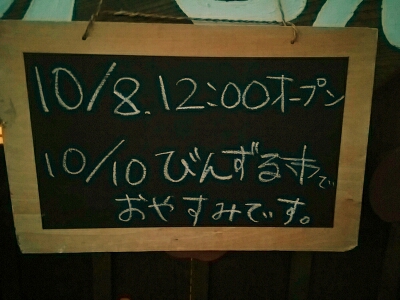 10/8.12:00オープン
10/10びんずる市で
おやすみです。